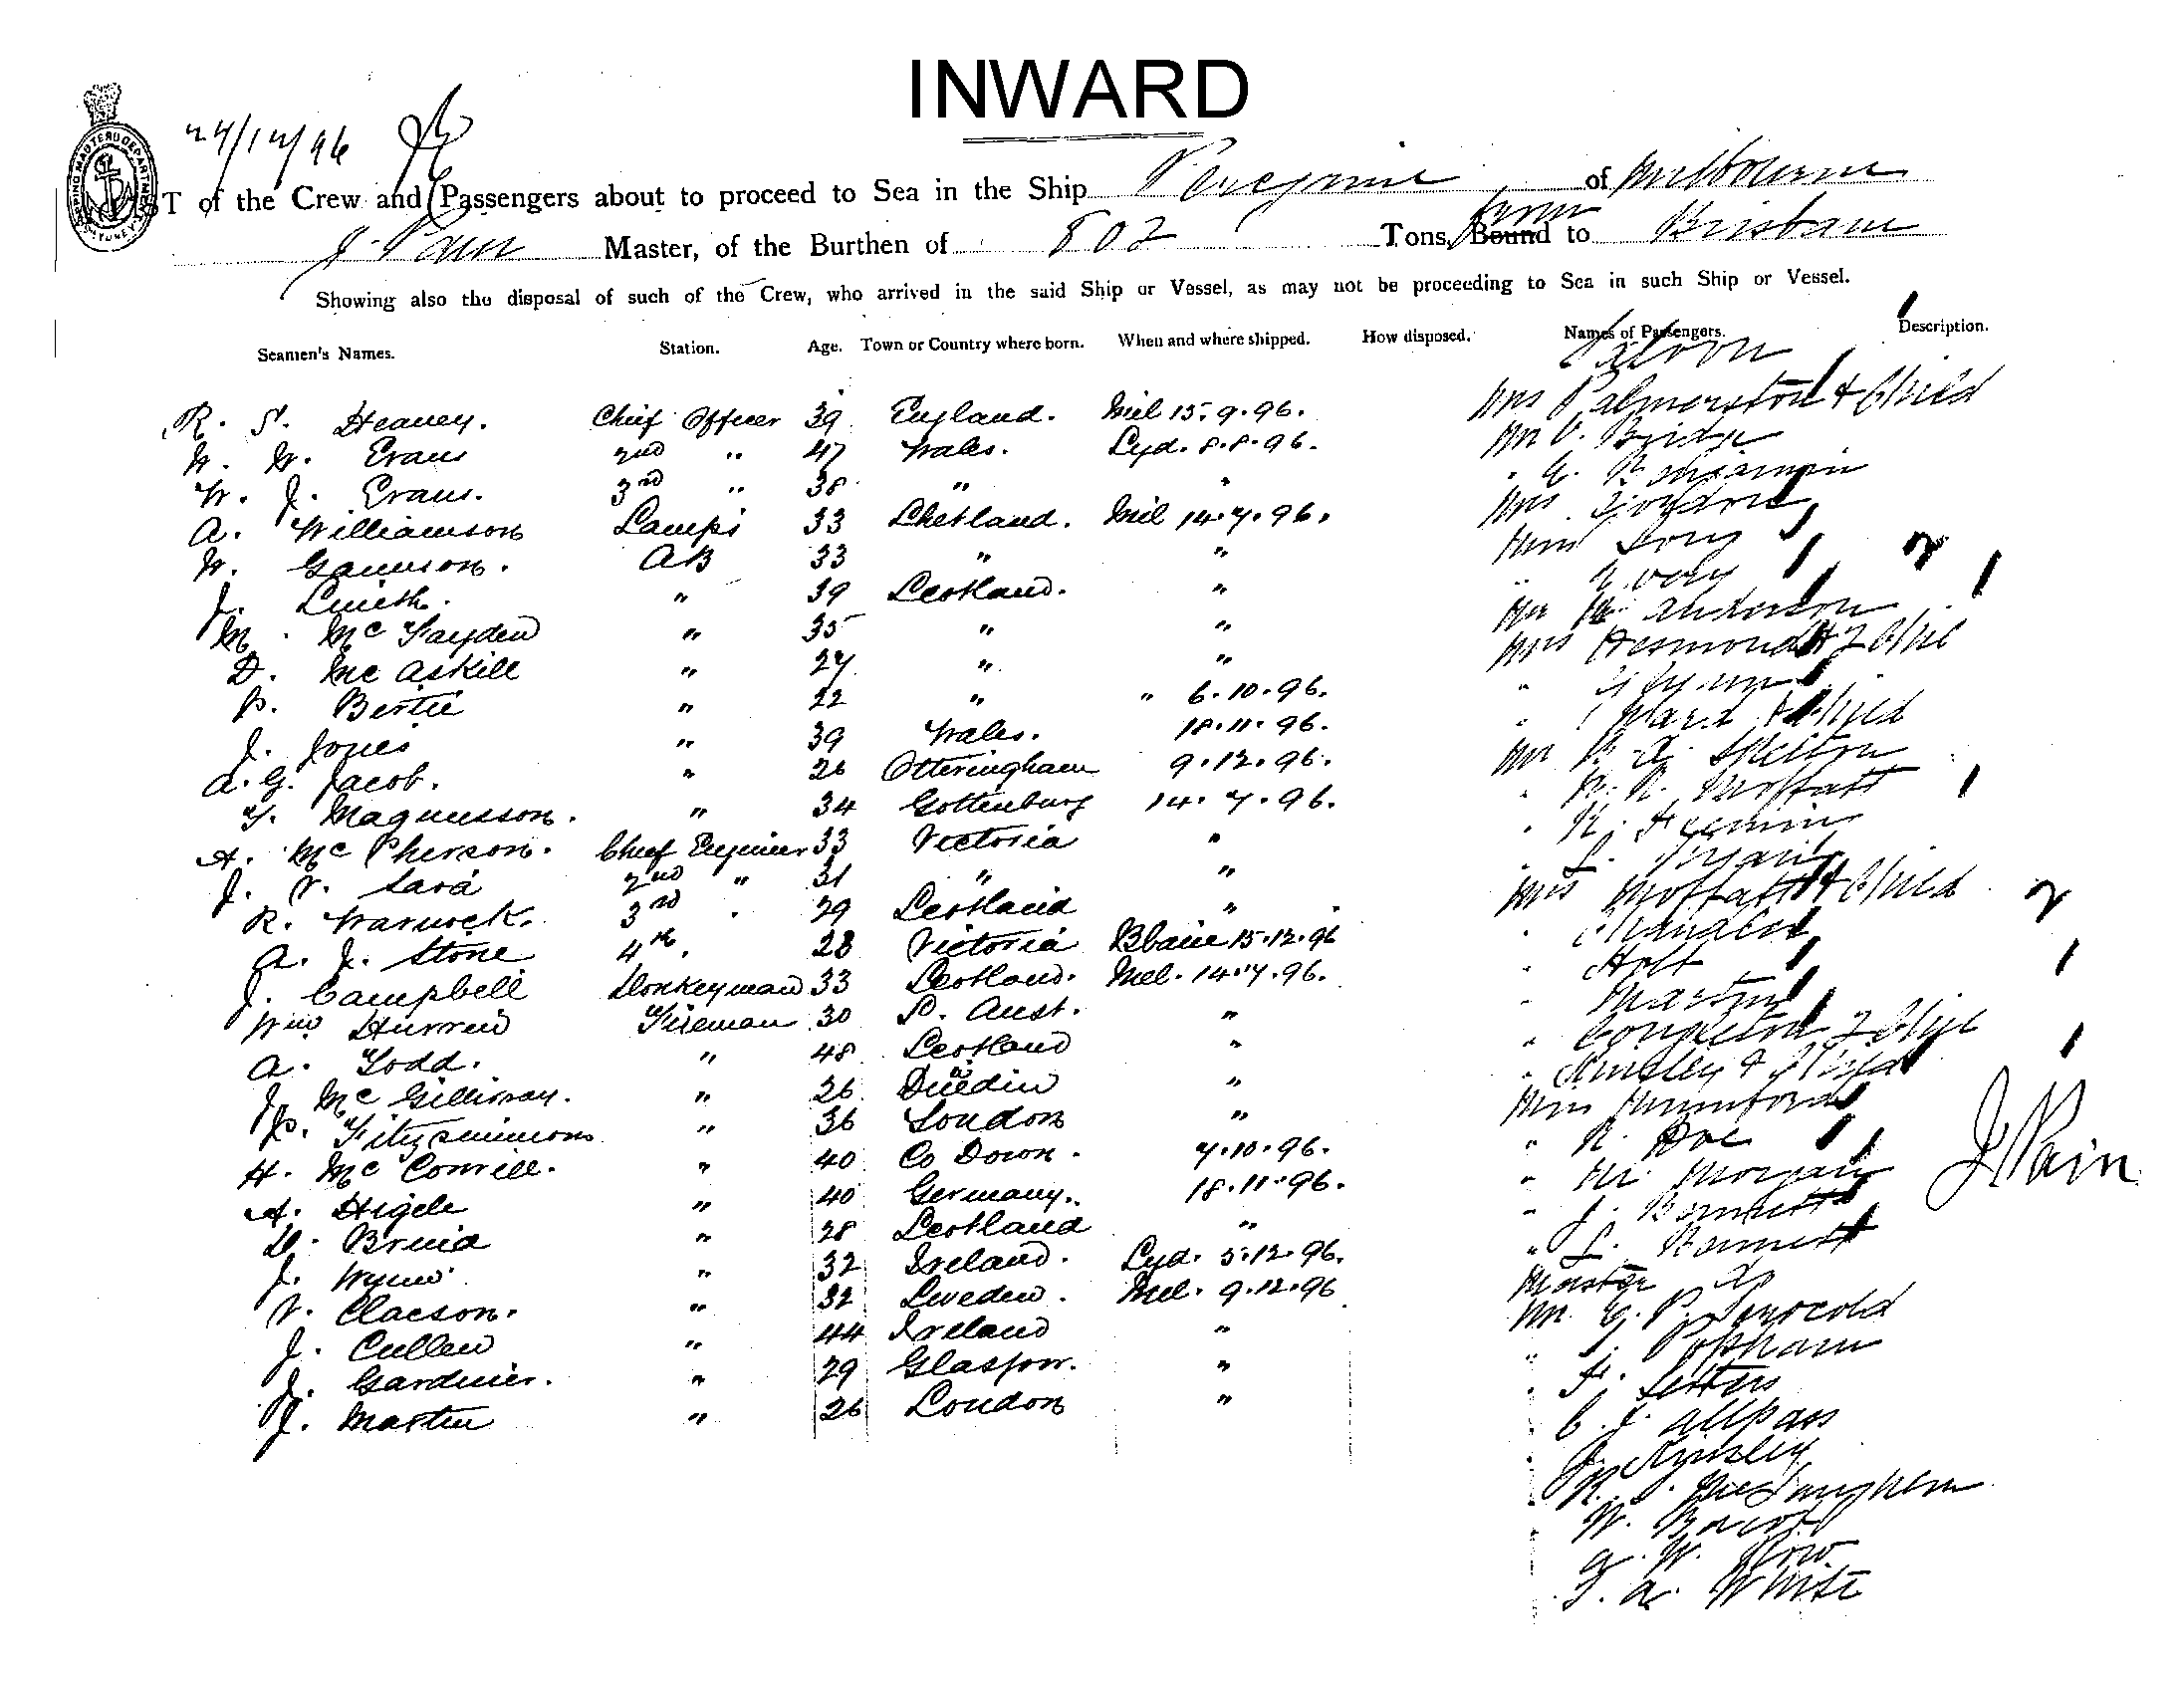 INWARD
24/12/96
LIST of the Crew and Passengers about to proceed to Sea in the Ship Peregrine of Melbourne
J. Pain Master, of the Burthen of 802 Tons, from Bound to Brisbane
Showing also the disposal of such of the Crew, who arrived in the said Ship or Vessel, as may not be proceeding to Sea in such Ship or Vessel.
Seamen's Names. Station. Age. Town or Country where born. When and where shipped. How disposed. Names of Passengers. Description.
Saloon
R. S. Heaney. Chief Officer 39 England. Mel 15.9.96. Mrs Palmerston & Child
W. W. Evans 2nd " 47 Wales. Syd. 8.8.96. Mr V. Bridge
W. J. Evans. 3rd " 38 " " " Benjamin
A. Williamson Lamps 33 Shetland. Mel 14.7.96. Mrs
W. Gaunson. AB 33 " " Miss
J. Smith. " 39 Scotland. "
M. McFayden " 35 " " Mr Anderson
D. McAskill " 27 " " Mrs Desmond & 2 Chil
P. Bertie " 22 " " 6.10.96.
J. Jones " 39 Wales. 18.11.96. " Ward & Child
A. G. Jacob. " 26 Otteringham 9.12.96. Mr Skelton
T. Magnusson. " 34 Gottenburg 14.7.96. " Moffatt
A. McPherson. Chief Engineer 33 Victoria "
J. V. Sara 2nd " 31 " " " L.
R. Warnock. 3rd " 29 Scotland " Mrs Moffatt & Child
A. J. Stone 4th " 28 Victoria Bbane 15.12.96
J. Campbell Donkeyman 33 Scotland. Mel. 14.7.96. " Holt
Wm Hurren Fireman 30 S. Aust. " " Martin
A. Todd. " 48 Scotland " " 2 Chil
J. McGillivray. " 26 Dunedin " " Kinsley &
P. Fitzsimmons " 36 London " Miss Mumford
H. McConvill. " 40 Co Down. 7.10.96. "
A. Higele " 40 Germany. 18.11.96. " M. Morgan
D. Bruid " 28 Scotland " " J. Bennett
J. Wynn " 32 Ireland. Syd. 5.12.96. " L. Bennett
V. Claeson. " 32 Sweden. Mel. 9.12.96 Master Do
J. Cullen " 44 Ireland " Mr. G. P. Serocold
J. Gardiner. " 29 Glasgow. " " J. Popham
J. Martin " 26 London " " F.
" C. J. Allpass
" J. Kinsley
" R. J.
" W.
" G. W. How
" T. A. White
J Pain